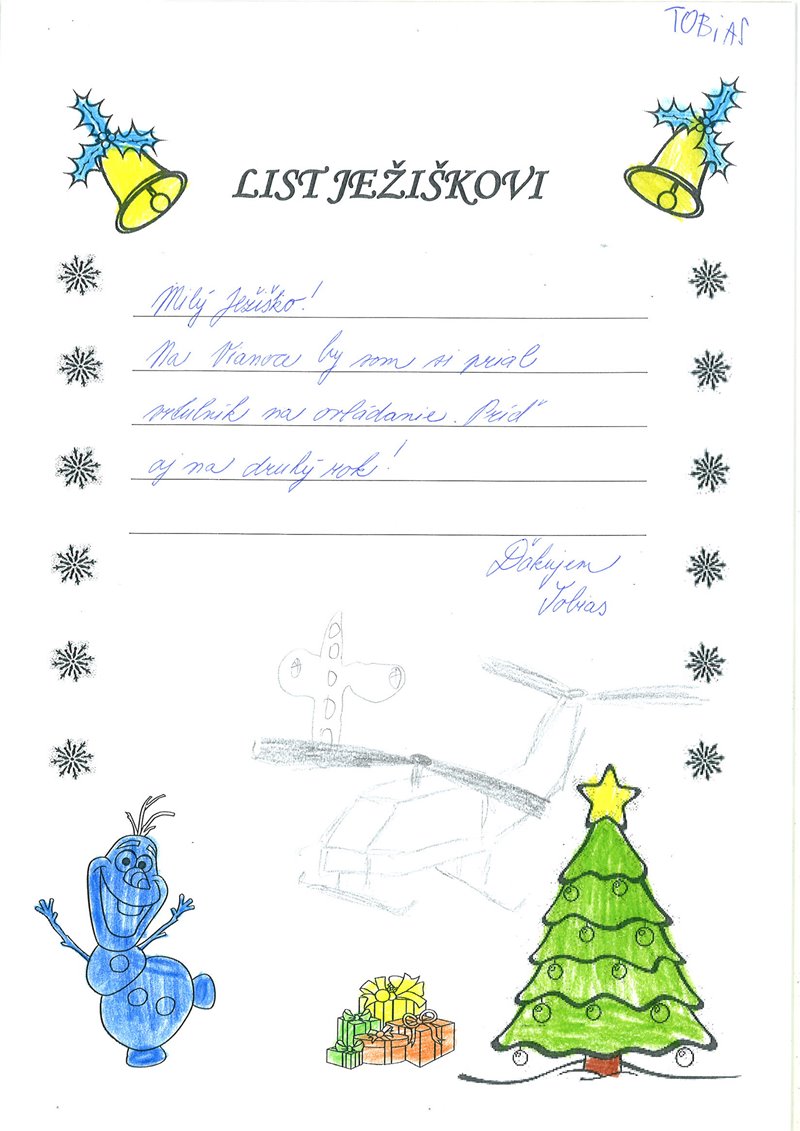 TOBiAS
LIST JEŽIŠKOVI
Milý Ježiško!
Na Vianoce by som si prial
vrtulník na ovládanie. Príď
aj na druhý rok!
Ďakujem
Tobias